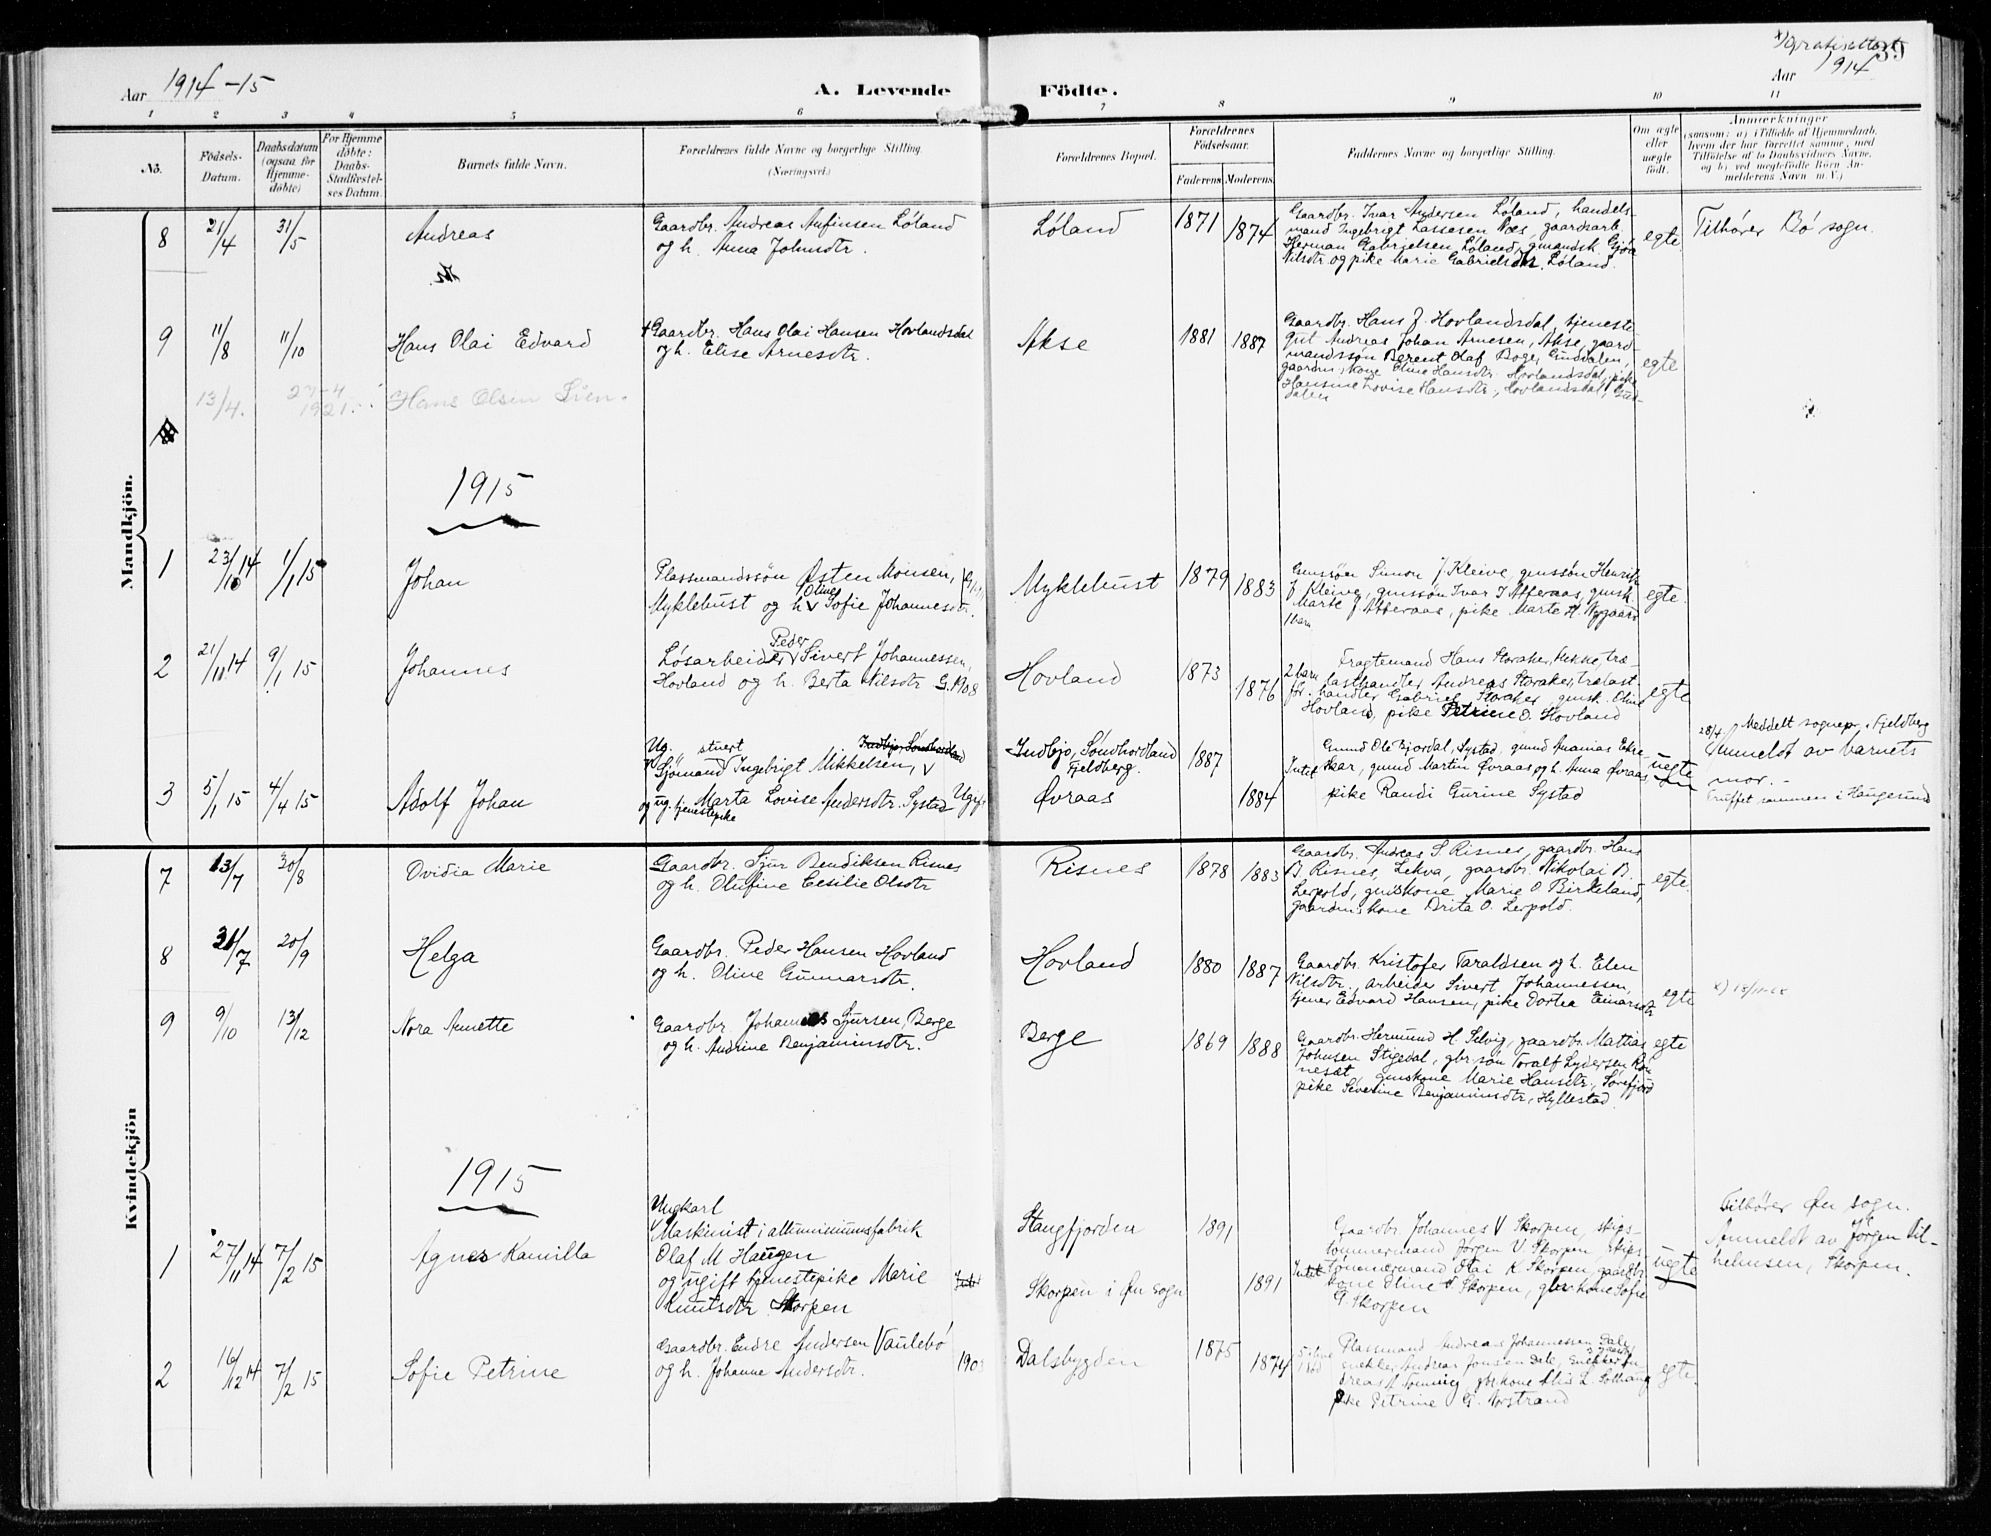 Aar 1914-15
A. Levende Födte.
Aar 1914
39
1 2 3 4 5 6 7 8 9 10 11
No.
Födsels-Datum.
Daabsdatum (ogsaa for Hjemme-döbte)
For Hjemme döbte: Daabs-Stadfæstel-ses Datum.
Barnets fulde Navn.
Forældrenes fulde Navne og borgerlige Stilling.
(Næringsvei.)
Forældrenes Bopæl.
Forældrenes Födselsaar.
Faderens
Moderens
Faddernes Navne og borgerlige Stilling.
Om ægte eller uægte født.
Anmærkninger
(saasom: a) i Tilfælde af Hjemmedaab, hvem der har forrettet samme, med Tilföielse af to Daabsvidners Navne, og b) ved uegtefödte Börn An-melderens Navn m. V.)
Mandkjön.
8 21/4 31/5 Andreas
Gaardbr. Andreas Anfinsen Løland
og h. Anna Johnsdtr.
Løland 1871 1874
Gaardbr. Ivar Andersen Løland, handels-
mand Ingebrigt Lassesen Næs, gaardsarb.
Herman Gabrielsen Løland, gmandsk. Gjøa
Nilsdtr. og pike Marie Gabrielsdtr. Løland.
egte
Tilhører Bø sogn.
9 11/8 11/10 Hans Olai Edvard
Gaardbr. Hans Olai Hansen Hovlandsdal
og h. Elise Arnesdtr.
Akse 1881 1887
Gaardbr. Hans J. Hovlandsdal, tjeneste-
gut Andreas Johan Arnesen, Akse, gaard-
mandssøn Berent Olaf Boge, Guddalen,
gaardm. kone Oline Hansdtr. Hovlandsdal, pike
Hansine Lovise Hansdtr., Hovlandsdal, Gud-
dalen
egte
13/4. 27-4 1921. Hans Olsen Lien.
1915
1 23/10 14 1/1 15 Johan
Plassmandssøn Østen Monsen,
Myklebust og h. Oline Sofie Johannesdtr.
Myklebust 1879 1883
Gmssøn Simon J Kleive, gmssøn Henrik
J Kleive, gmssøn Ivar J Atteraas, gmsk.
Marte J Atteraas, pike Marte A. Nygaard
1 barn
egte.
2 21/11 14 9/1 15 Johannes
Løsarbeider Peder Sivert Johannessen,
Hovland og h. Berta Nilsdtr G. 1908
Hovland 1873 1876
2 barn før.
Fragtemand Hans Storaker, Flekke, træ-
lasthandler Andreas Storaker, trælast-
handler Gabriel Storaker, gmsk. Oline
Hovland, pike Petrine O. Hovland
egte
3 5/1 15 4/4 15 Adolf Johan
Ug. stuert
Sjømand Ingebrigt Mikkelsen,
og ug. tjenestepike Marta Lovise Andersdtr. Systad Ugift
Indbjo, Søndhordland
Fjeldberg.
Øvraas
1887 1884
Intet
Gmnd Ole Bjordal, Systad, gmnd Ananias Eike-
skar, gmnd Martin Øvraas og h. Anna Øvraas,
pike Randi Gurine Systad
uegte
28/4 Meddelt sognepr. i Fjeldberg
Anmeldt av barnets
mor.-
Truffet sammen i Haugesund
Kvindekjön
7 13/7 30/8 Ovidia Marie
Gaardbr. Sjur Bendiksen Risnes
og h. Olufine Cesilie Olsdtr
Risnes 1878 1883
Gaardbr. Andreas S. Risnes, gaardbr. Hans
B Risnes, Lekva, gaardbr. Nikolai B.
Leopold, gmskone Marie O Birkeland,
gaardmskone Brita O. Leopold.
egte
8 31/7 20/9 Helga
Gaardbr. Peder Hansen Hovland
og h. Oline Gunnarsdtr.
Hovland 1880 1887
Gaardbr. Kristofer Taraldsen og h. Elen
Nilsdtr., arbeider Sivert Johannessen,
tjener Edvard Hansen, pike Dortea Einarsdtr
egte
9 9/10 13/12 Nora Annette
Gaardbr. Johannes Sjursen, Berge
og h. Andrine Benjaminsdtr.
Berge 1869 1888
Gaardbr. Hermund H. Selvig, gaardbr. Mathias
Johnsen Stigedal, gbr. søn Toralf Lydersen Røn-
nesæt, gmskone Marie Hansdtr., Sørefjord
pike Severine Benjaminsdtr, Hyllestad.
egte
1915
1 27/11 14 7/2 15 Agnes Kamilla
Ungkarl
Maskinist i alluminiumsfabrik
Olaf M Haugen
og ugift tjenestepike Marie
Knutsdtr. Skorpen
Stangfjorden
Skorpen i Øn sogn
1891 1891
Intet
Gaardbr Johannes V Skorpen, skips-
tømmermand Jørgen V. Skorpen, skips-
tømmermand Olai K Skorpen, gaardbr.
kone Oline A Skorpen, gbr kone Sofie
G. Skorpen
uegte
Tilhører Øn sogn.
Anmeldt av Jørgen Vil-
helmsen, Skorpen.
2 16/12 14 7/2 15 Sofie Petrine
Gaardbr. Endre Andersen Vaulebø
og h. Johanne Andersdtr.
Dalsbygden 1875 1874
Plassmand Andreas Johannessen Dale
snekker Andreas Jonsen Dale, snekker An-
dreas A Tonning, gbr kone Alis L. Solhaug
pike Petrine G. Norstrand
egte.